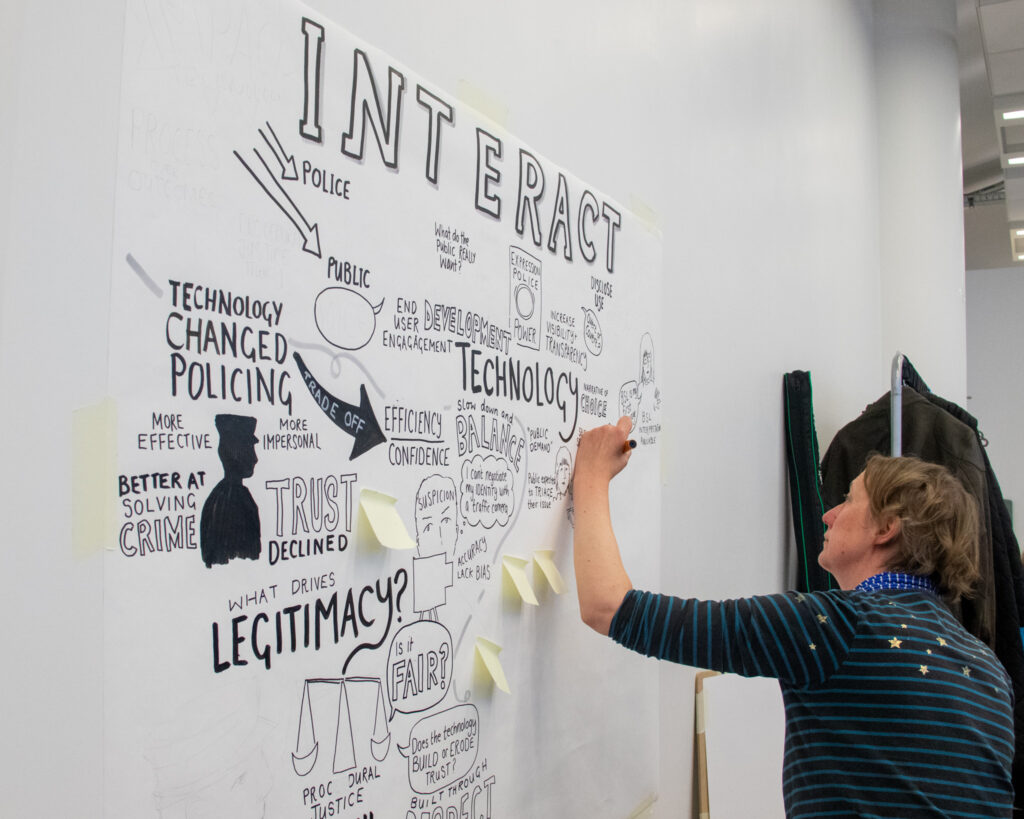 INTERACT
POLICE
PUBLIC
What do the
Public REALLY
Want?
EXPRESSION
POLICE
POWER
DISCLOSE
USE
TECHNOLOGY
CHANGED
POLICING
MORE
EFFECTIVE
MORE
IMPERSONAL
BETTER AT
SOLVING
CRIME
TRUST
DECLINED
TRADE OFF
EFFICIENCY
CONFIDENCE
END
USER
ENGAGEMENT
DEVELOPMENT
TECHNOLOGY
INCREASE
VISIBILITY +
TRANSPARENCY
NARRATIVE OF
CHOICE
Slow down and
BALANCE
I can't negotiate
my IDENTITY with
a traffic camera
"PUBLIC
DEMAND"
Public expected
to TRIAGE
their issue
SUSPICION
ACCURACY
LACK BIAS
WHAT DRIVES
LEGITIMACY?
Is it
FAIR?
Does the technology
BUILD or ERODE
TRUST?
PROC DURAL
JUSTICE
BUILT THROUGH
PROCESS